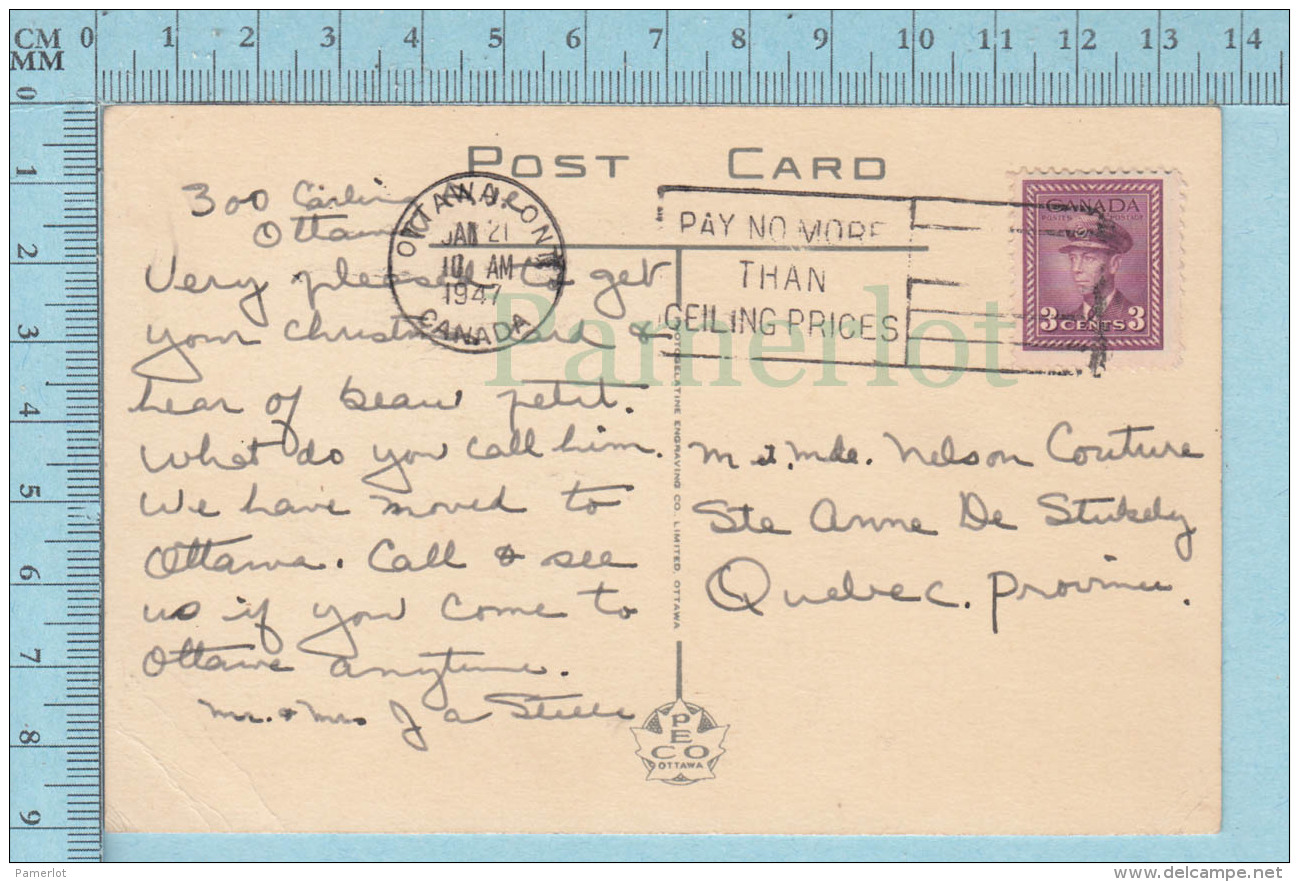 CM 0 1 2 3 4 5 6 7 8 9 10 11 12 13 14
MM
0 1 2 3 4 5 6 7 8 9
POST CARD
300 Carling
Ottawa
OTTAWA, ONT.
JAN 21
10 AM
1947
CANADA
PAY NO MORE
THAN
CEILING PRICES
CANADA
POSTES POSTAGE
3 CENTS 3
Very pleased to get
your Christmas card &
hear of beau petit.
What do you call him.
We have moved to
Ottawa. Call & see
us if you come to
Ottawa anytime.
Mr. & Mrs J a
M et. Mde. Nelson Couture
Ste Anne De Stukely
Quebec. Province.
PHOTOGELATINE ENGRAVING CO. LIMITED, OTTAWA
PECO
OTTAWA
Pamerlot
Pamerlot
www.delcampe.net